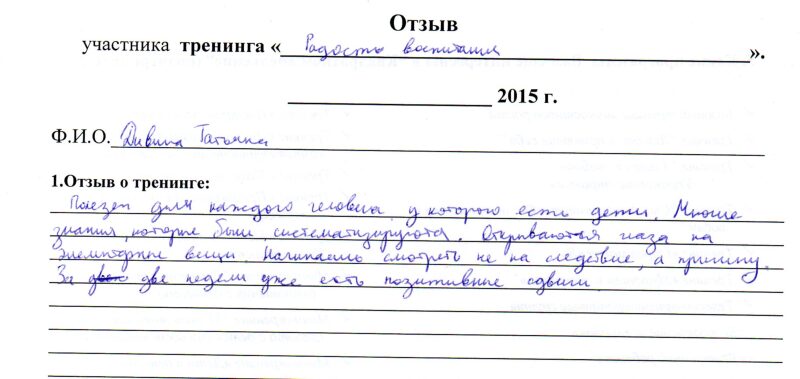 Отзыв
участника тренинга « Радость воспитания ».
2015 г.
Ф.И.О. Дивина Татьяна
1.Отзыв о тренинге:
Полезен для каждого человека, у которого есть дети. Многие
знания, которые были, систематизируются. Открываются глаза на
элементарные вещи. Начинаешь смотреть не на следствие, а причину.
За две недели уже есть позитивные сдвиги